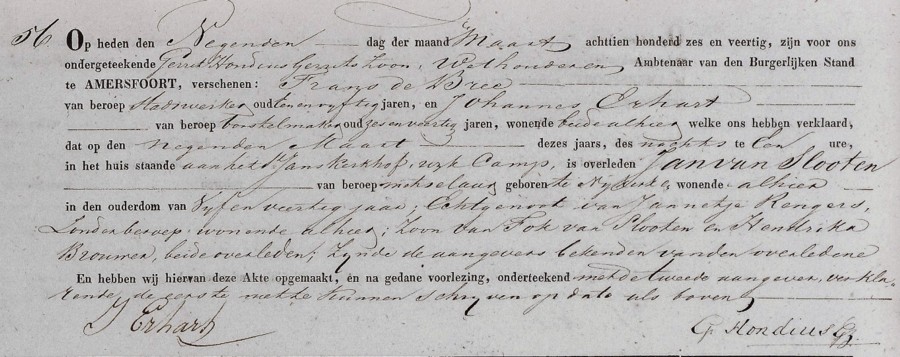 56. Op heden den Negenden dag der maand Maart achttien honderd zes en veertig, zijn voor ons
ondergeteekende Gerrit Hondius Gerrits Zoon, Wethouder en Ambtenaar van den Burgerlijken Stand
te AMERSFOORT, verschenen: Frans de Bree
van beroep Stadswerker oud een en vijftig jaren, en Johannes Erhart
van beroep borstelmaker oud zes en veertig jaren, wonende beide alhier welke ons hebben verklaard,
dat op den negenden Maart dezes jaars, des nachts te Een ure,
in het huis staande aan het St Jans Kerkhof, wijk Camp, is overleden Jan van Slooten
van beroep metselaar geboren te Nijkerk, wonende alhier
in den ouderdom van Vijf en veertig jaar; Echtgenoot van Jannetje Rengers,
Zonder beroep wonende alhier; Zoon van Fok van Slooten en Hendrika
Brouwer, beide overleden; Zynde de aangevers bekenden van den overledene
En hebben wij hiervan deze Akte opgemaakt, en na gedane voorlezing, onderteekend met de tweede aangever, verkla-
rende de eerste niet te kunnen schryven op dato als boven
J Erhart G Hondius Gz.